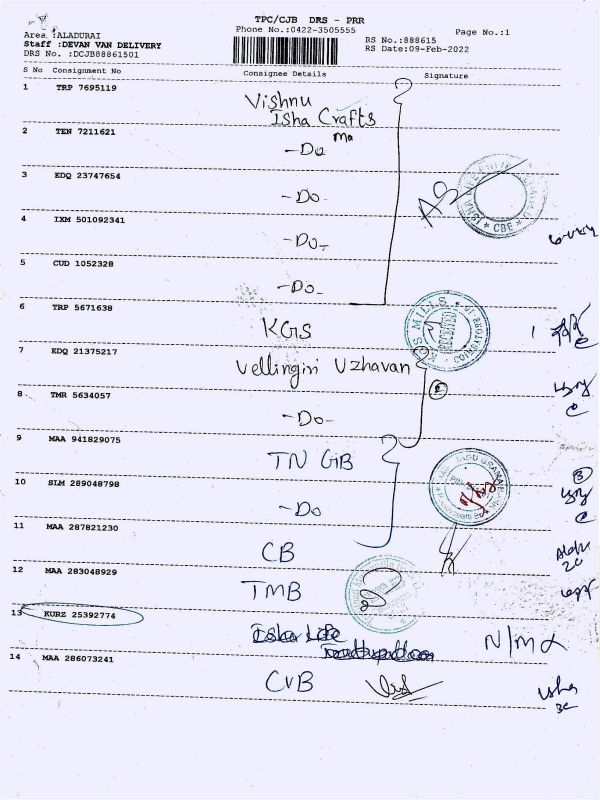 TPC/CJB DRS - PRR
Area :ALADURAI
Phone No.:0422-3505555
Page No.:1
Staff :DEVAN VAN DELIVERY
RS No.:888615
DRS No. :DCJB88861501
RS Date:09-Feb-2022
S No Consignment No Consignee Details Signature
1 TRP 7695119 Vishnu
Isha Crafts
2 TEN 7211621 -Do
3 EDQ 23747654 -Do-
4 IXM 501092341 -Do-
CBE
5 CUD 1052328 -Do-
6 TRP 5671638 KGS
MILLS
RECEIVED
7 EDQ 21375217 Vellingiri Uzhavan
8 TMR 5634057 -Do-
9 MAA 941829075 TN GB
10 SLM 289048798 -Do
11 MAA 287821230 CB
12 MAA 283048929 TMB
13 KURZ 25392774 Isha Life
14 MAA 286073241 CVB